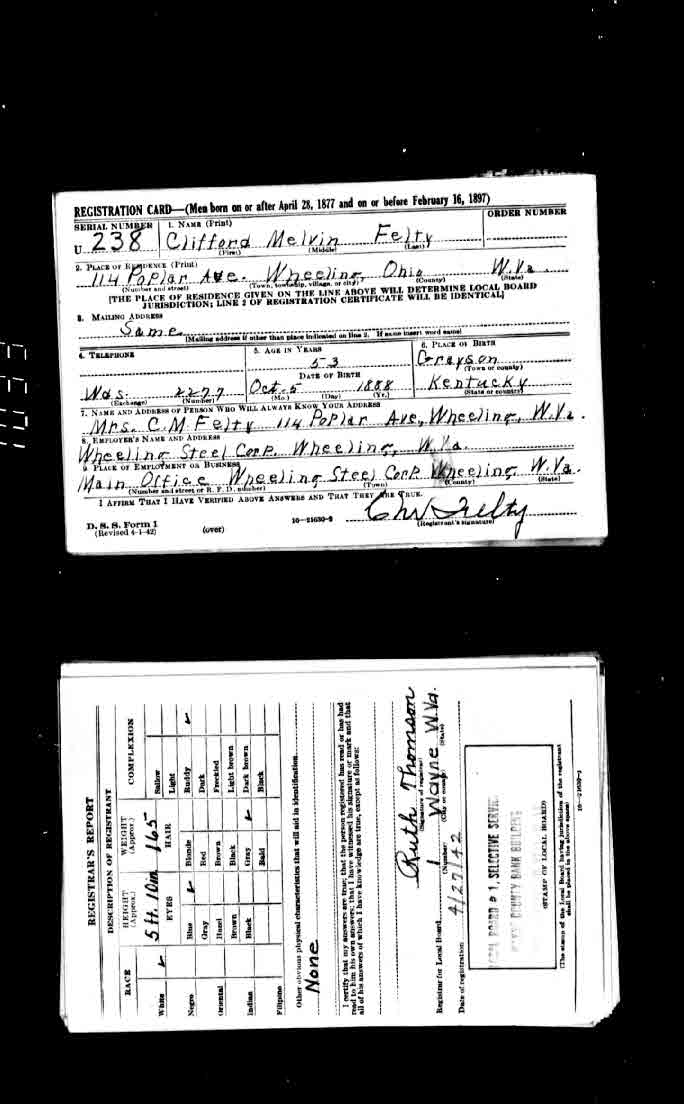 REGISTRATION CARD—(Men born on or after April 28, 1877 and on or before February 16, 1897)
SERIAL NUMBER
1. NAME (Print)
ORDER NUMBER
U 238
Clifford Melvin Felty
(First) (Middle) (Last)
2. PLACE OF RESIDENCE (Print)
114 Poplar Ave. Wheeling, Ohio W.Va.
(Number and street) (Town, township, village, or city) (County) (State)
[THE PLACE OF RESIDENCE GIVEN ON THE LINE ABOVE WILL DETERMINE LOCAL BOARD
JURISDICTION; LINE 2 OF REGISTRATION CERTIFICATE WILL BE IDENTICAL]
3. MAILING ADDRESS
Same
[Mailing address if other than place indicated on line 2. If same insert word same]
4. TELEPHONE
5. AGE IN YEARS
6. PLACE OF BIRTH
53
Grayson
(Town or county)
DATE OF BIRTH
Wds. 2277
Oct. 5 1888
Kentucky
(Exchange) (Number)
(Mo.) (Day) (Yr.)
(State or country)
7. NAME AND ADDRESS OF PERSON WHO WILL ALWAYS KNOW YOUR ADDRESS
Mrs. C.M. Felty 114 Poplar Ave., Wheeling, W.Va.
8. EMPLOYER'S NAME AND ADDRESS
Wheeling Steel Corp. Wheeling, W.Va.
9. PLACE OF EMPLOYMENT OR BUSINESS
Main Office Wheeling Steel Corp Wheeling W.Va.
(Number and street or R. F. D. number) (Town) (County) (State)
I AFFIRM THAT I HAVE VERIFIED ABOVE ANSWERS AND THAT THEY ARE TRUE.
Felty
D. S. S. Form 1
(Revised 4-1-42)
(over)
16—21630-2
(Registrant's signature)
REGISTRAR'S REPORT
DESCRIPTION OF REGISTRANT
RACE
HEIGHT (Approx.)
WEIGHT (Approx.)
COMPLEXION
White ✓
5 ft. 10 in
165
Sallow
EYES
HAIR
Light
Negro
Blue ✓
Blonde
Ruddy ✓
Gray
Red
Dark
Oriental
Hazel
Brown
Freckled
Brown
Black
Light brown
Indian
Black
Gray ✓
Dark brown
Bald
Black
Filipino
Other obvious physical characteristics that will aid in identification
None
I certify that my answers are true; that the person registered has read or has had
read to him his own answers; that I have witnessed his signature or mark and that
all of his answers of which I have knowledge are true, except as follows:
Ruth Thomson
(Signature of registrar)
Registrar for Local Board 1 Wayne W.Va.
(Number) (City or county) (State)
Date of registration 4/27/42
LOCAL BOARD # 1, SELECTIVE SERVICE
COUNTY BANK BUILDING
(STAMP OF LOCAL BOARD)
(The stamp of the Local Board having jurisdiction of the registrant
shall be placed in the above space)
16—21630-1